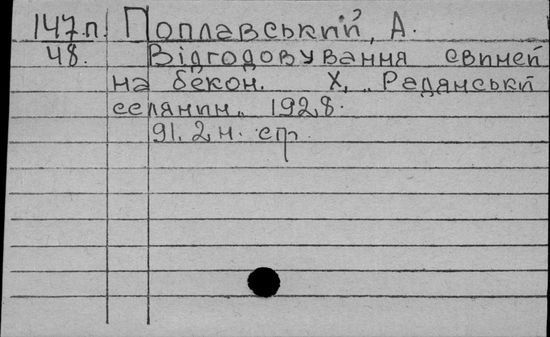 147.п. Поплавський, А.
48. Відгодовування свиней
на бекон. Х, „Радянський
селянин„ 1928.
91, 2 н. стр.